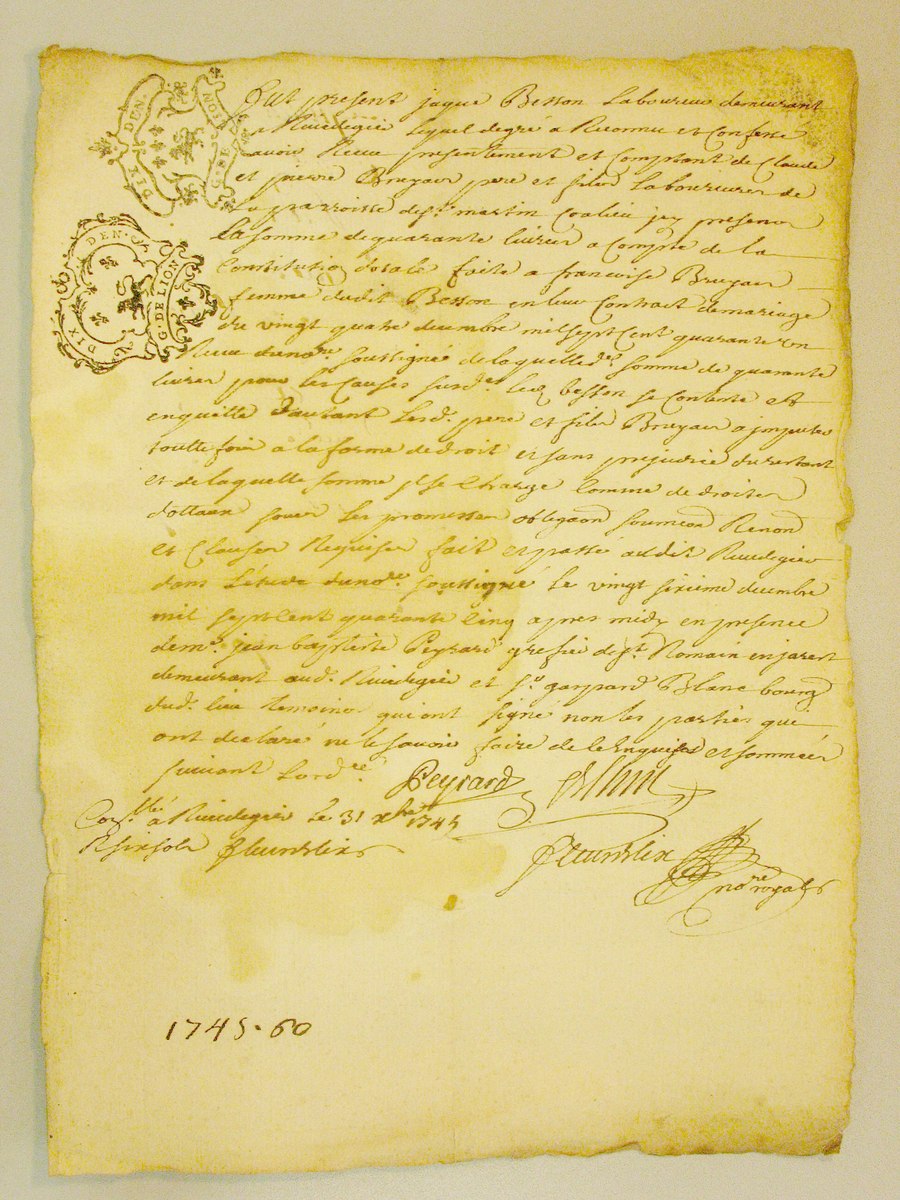 DIX DEN.
G. DE LION
DIX DEN.
G. DE LION
Fut present jaque Besson Laboureur demeurant
a Rivedegier lequel degré a Reconnu et Confessé
avoir Receu presentement et Comptant de Claude
et pierre Bruyas pere et fils Laboureurs de
La parroisse de st martin Coalieu jcy presens
La somme de quarante livres a Compte de la
Constitution dotale faite a francoise Bruyas
femme dudit Besson en leur Contract de mariage
du vingt quatre decembre mil sept cent quarante un
Receu du nore soussigné de laquelle de somme de quarante
livres pour les Causes surdes led besson se Contente et
en quitte d'autant lesd. pere et fils Bruyas a jmputer
toutte fois a la forme de droit et sans prejudice du restant
et de laquelle somme jl se Charge Comme de droits
dottaux sous les promesses obligaons soumions Renons
et Clauses Requises fait et passé audit Rivedegier
dans L'étude du nore soussigné le vingt sixieme decembre
mil sept cent quarante cinq apres midy en presence
de me. jean baptiste Peyrard grefier de st Romain en jarest
demeurant aud. Rivedegier et sr. gaspard Blanc bourg
dud. lieu temoins qui ont signé non les parties qui
ont declaré ne le savoir faire de ce enquises et sommées
suivant Lordce
Peyrard Blanc
Conllé a Rivedegier le 31 xbre 1745
R six sols
nore royal
1745-60